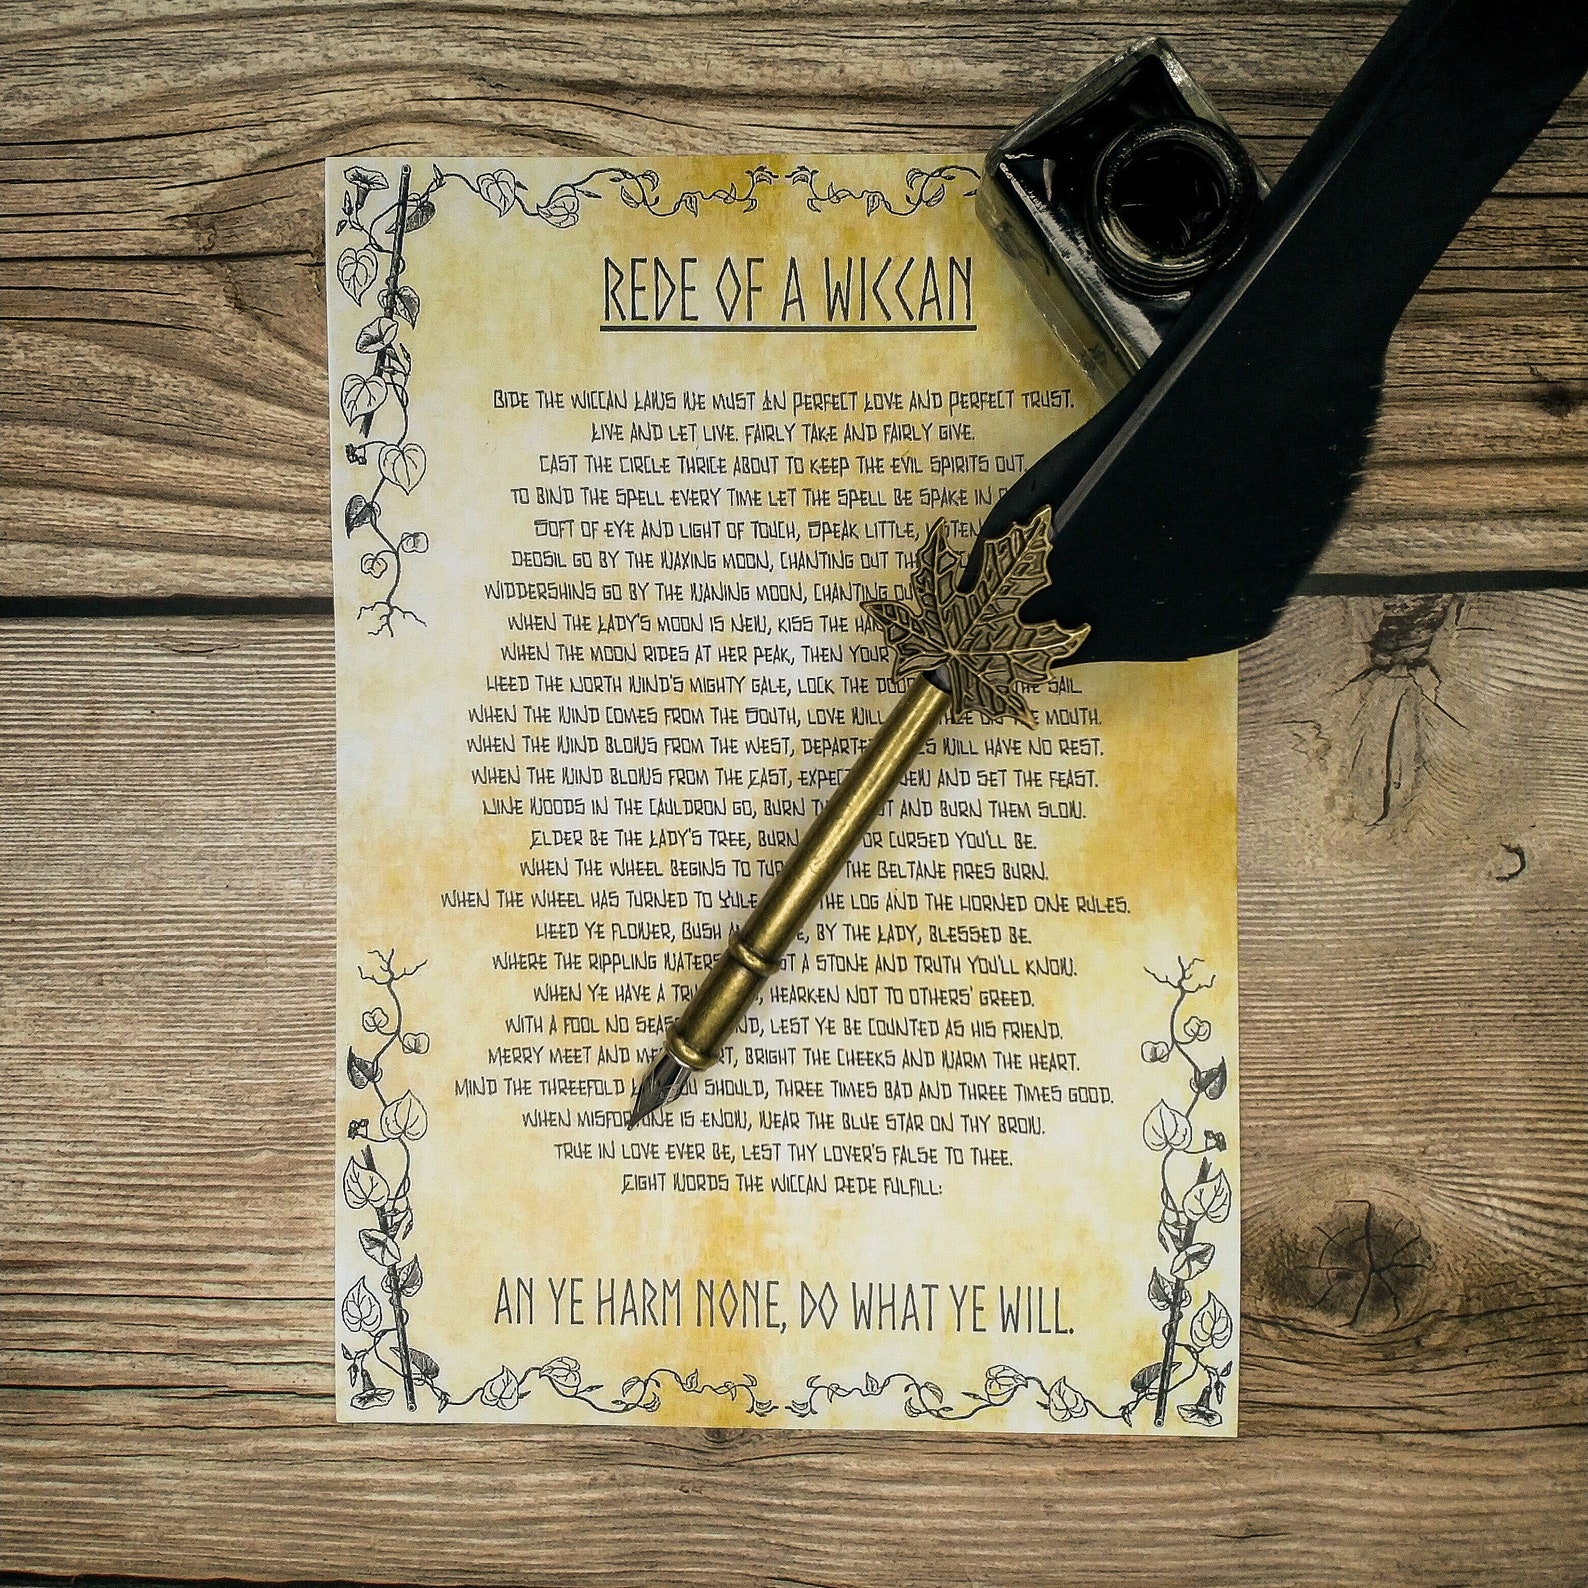 REDE OF A WICCAN
BIDE THE WICCAN LAWS WE MUST IN PERFECT LOVE AND PERFECT TRUST.
LIVE AND LET LIVE. FAIRLY TAKE AND FAIRLY GIVE.
CAST THE CIRCLE THRICE ABOUT TO KEEP THE EVIL SPIRITS OUT.
TO BIND THE SPELL EVERY TIME LET THE SPELL BE SPAKE IN
SOFT OF EYE AND LIGHT OF TOUCH, SPEAK LITTLE, LISTEN
DEOSIL GO BY THE WAXING MOON, CHANTING OUT THE
WIDDERSHINS GO BY THE WANING MOON, CHANTING OUT
WHEN THE LADY'S MOON IS NEW, KISS THE HAND
WHEN THE MOON RIDES AT HER PEAK, THEN YOUR
HEED THE NORTH WIND'S MIGHTY GALE, LOCK THE DOOR THE SAIL.
WHEN THE WIND COMES FROM THE SOUTH, LOVE WILL THEE ON THE MOUTH.
WHEN THE WIND BLOWS FROM THE WEST, DEPARTED WILL HAVE NO REST.
WHEN THE WIND BLOWS FROM THE EAST, EXPECT NEW AND SET THE FEAST.
NINE WOODS IN THE CAULDRON GO, BURN AND BURN THEM SLOW.
ELDER BE THE LADY'S TREE, BURN OR CURSED YOU'LL BE.
WHEN THE WHEEL BEGINS TO TURN THE BELTANE FIRES BURN.
WHEN THE WHEEL HAS TURNED TO YULE THE LOG AND THE HORNED ONE RULES.
HEED YE FLOWER, BUSH BY THE LADY, BLESSED BE.
WHERE THE RIPPLING WATERS A STONE AND TRUTH YOU'LL KNOW.
WHEN YE HAVE A HEARKEN NOT TO OTHERS' GREED.
WITH A FOOL NO SEASON LEST YE BE COUNTED AS HIS FRIEND.
MERRY MEET AND BRIGHT THE CHEEKS AND WARM THE HEART.
MIND THE THREEFOLD YOU SHOULD, THREE TIMES BAD AND THREE TIMES GOOD.
WHEN MISFORTUNE IS ENOW, WEAR THE BLUE STAR ON THY BROW.
TRUE IN LOVE EVER BE, LEST THY LOVER'S FALSE TO THEE.
EIGHT WORDS THE WICCAN REDE FULFILL:
AN YE HARM NONE, DO WHAT YE WILL.